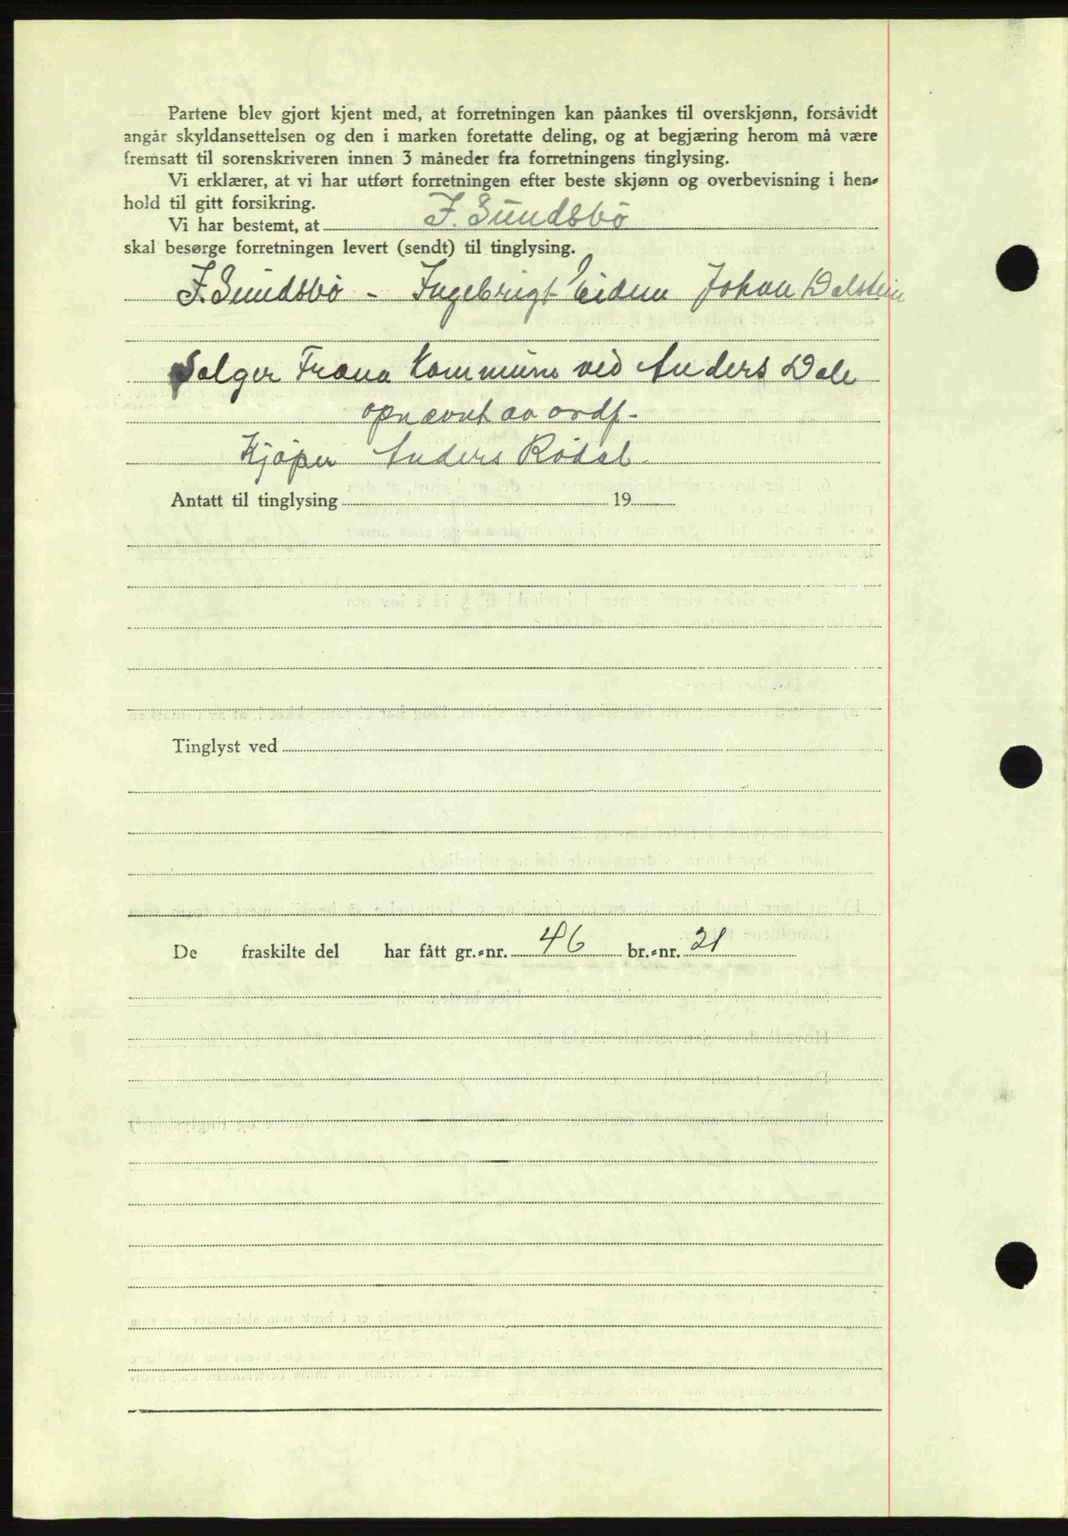 Partene blev gjort kjent med, at forretningen kan påankes til overskjønn, forsåvidt
angår skyldansettelsen og den i marken foretatte deling, og at begjæring herom må være
fremsatt til sorenskriveren innen 3 måneder fra forretningens tinglysing.
Vi erklærer, at vi har utført forretningen efter beste skjønn og overbevisning i hen-
hold til gitt forsikring.
Vi har bestemt, at J. Sundsbö
skal besørge forretningen levert (sendt) til tinglysing.
J. Sundsbö - Ingebrigt Eiden Johan Dalsten
Sælger Fræna Kommune ved Anders Dale
opnævnt av ordf-
Kjøper Anders Rödal.
Antatt til tinglysing 19
Tinglyst ved
De fraskilte del har fått gr.-nr. 46 br.-nr. 21